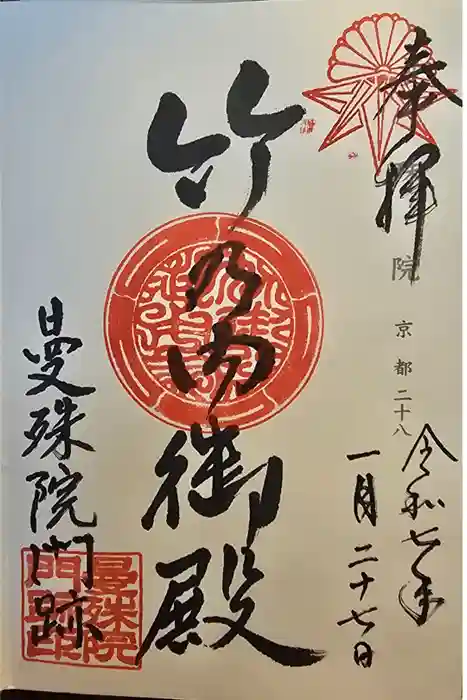 奉拝
院
京都二十八
令和七年
一月二十七日
竹乃内御殿
曼殊院門跡
曼殊院
門跡印